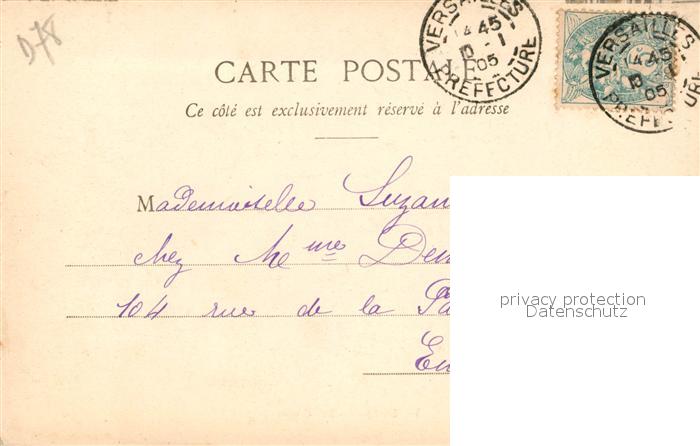 D78
VERSAILLES
14 45
10 - 1
05
PREFECTURE
VERSAILLES
14 45
10
05
PREFECTURE
CARTE POSTALE
Ce côté est exclusivement réservé à l'adresse
Mademoiselle Suzan
chez Mme
104 rue de la
privacy protection
Datenschutz